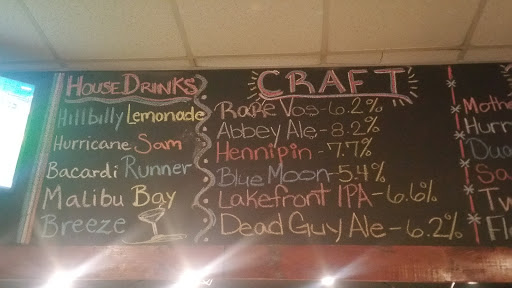 House Drinks
Hillbilly Lemonade
Hurricane Sam
Bacardi Runner
Malibu Bay
Breeze
CRAFT
Rare Vos-6.2%
Abbey Ale-8.2%
Hennipin-7.7%
Blue Moon-5.4%
Lakefront IPA-6.6%
Dead Guy Ale-6.2%